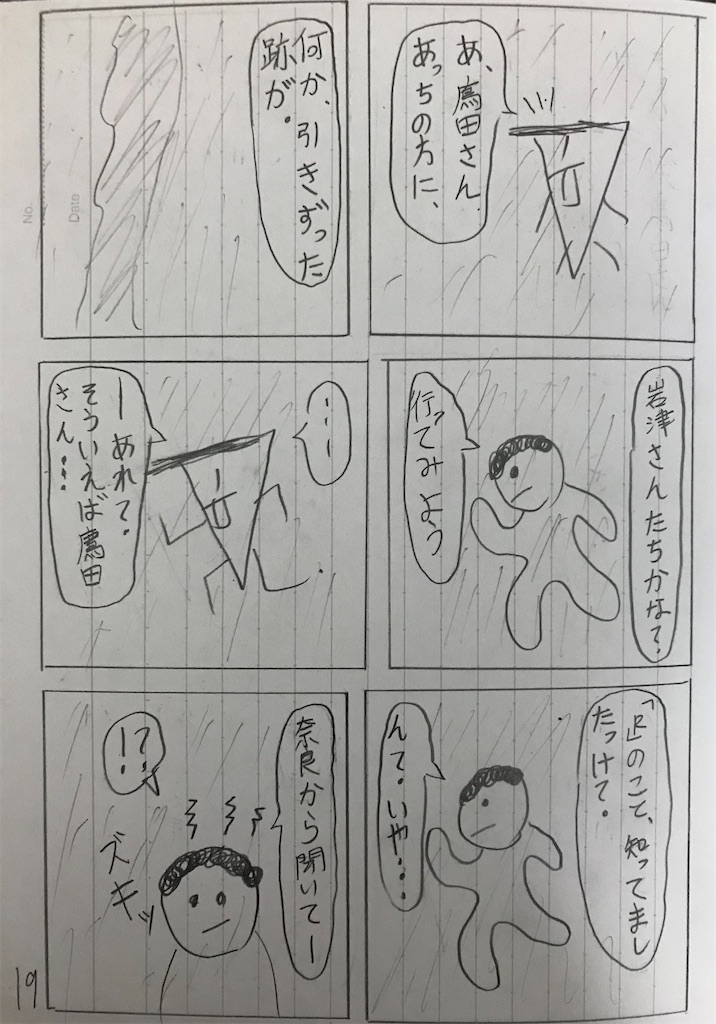 あ、鷹田さん、
あっちの方に、
何か、引きずった
跡が。
岩津さんたちかな?
行ってみよう
・・・
ーあれ?
そういえば鷹田
さん・・・
のこと、知ってまし
たっけ?
ん?いや・・・
奈良から聞いてー
!?
ズキッ
No.
Date
19